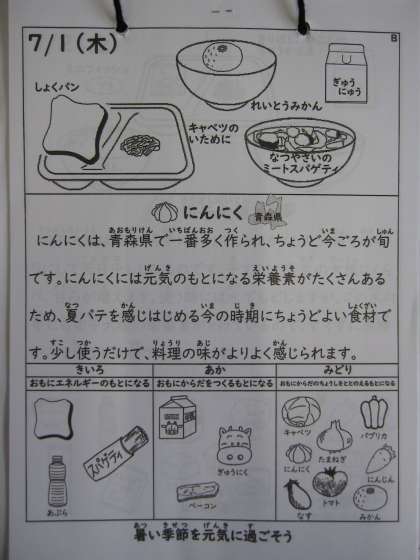 7/1(木)
B
しょくパン
れいとうみかん
ぎゅう
にゅう
キャベツの
いために
なつやさいの
ミートスパゲティ
にんにく
青森県
にんにくは、青森県で一番多く作られ、ちょうど今ごろが旬
です。にんにくには元気のもとになる栄養素がたくさんある
ため、夏バテを感じはじめる今の時期にちょうどよい食材で
す。少し使うだけで、料理の味がよりよく感じられます。
きいろ
あか
みどり
おもにエネルギーのもとになる
おもにからだをつくるもとになる
おもにからだのちょうしをととのえるもとになる
スパゲティ
あぶら
ぎゅうにく
ベーコン
キャベツ
パプリカ
たまねぎ
にんにく
にんじん
トマト
なす
みかん
暑い季節を元気に過ごそう